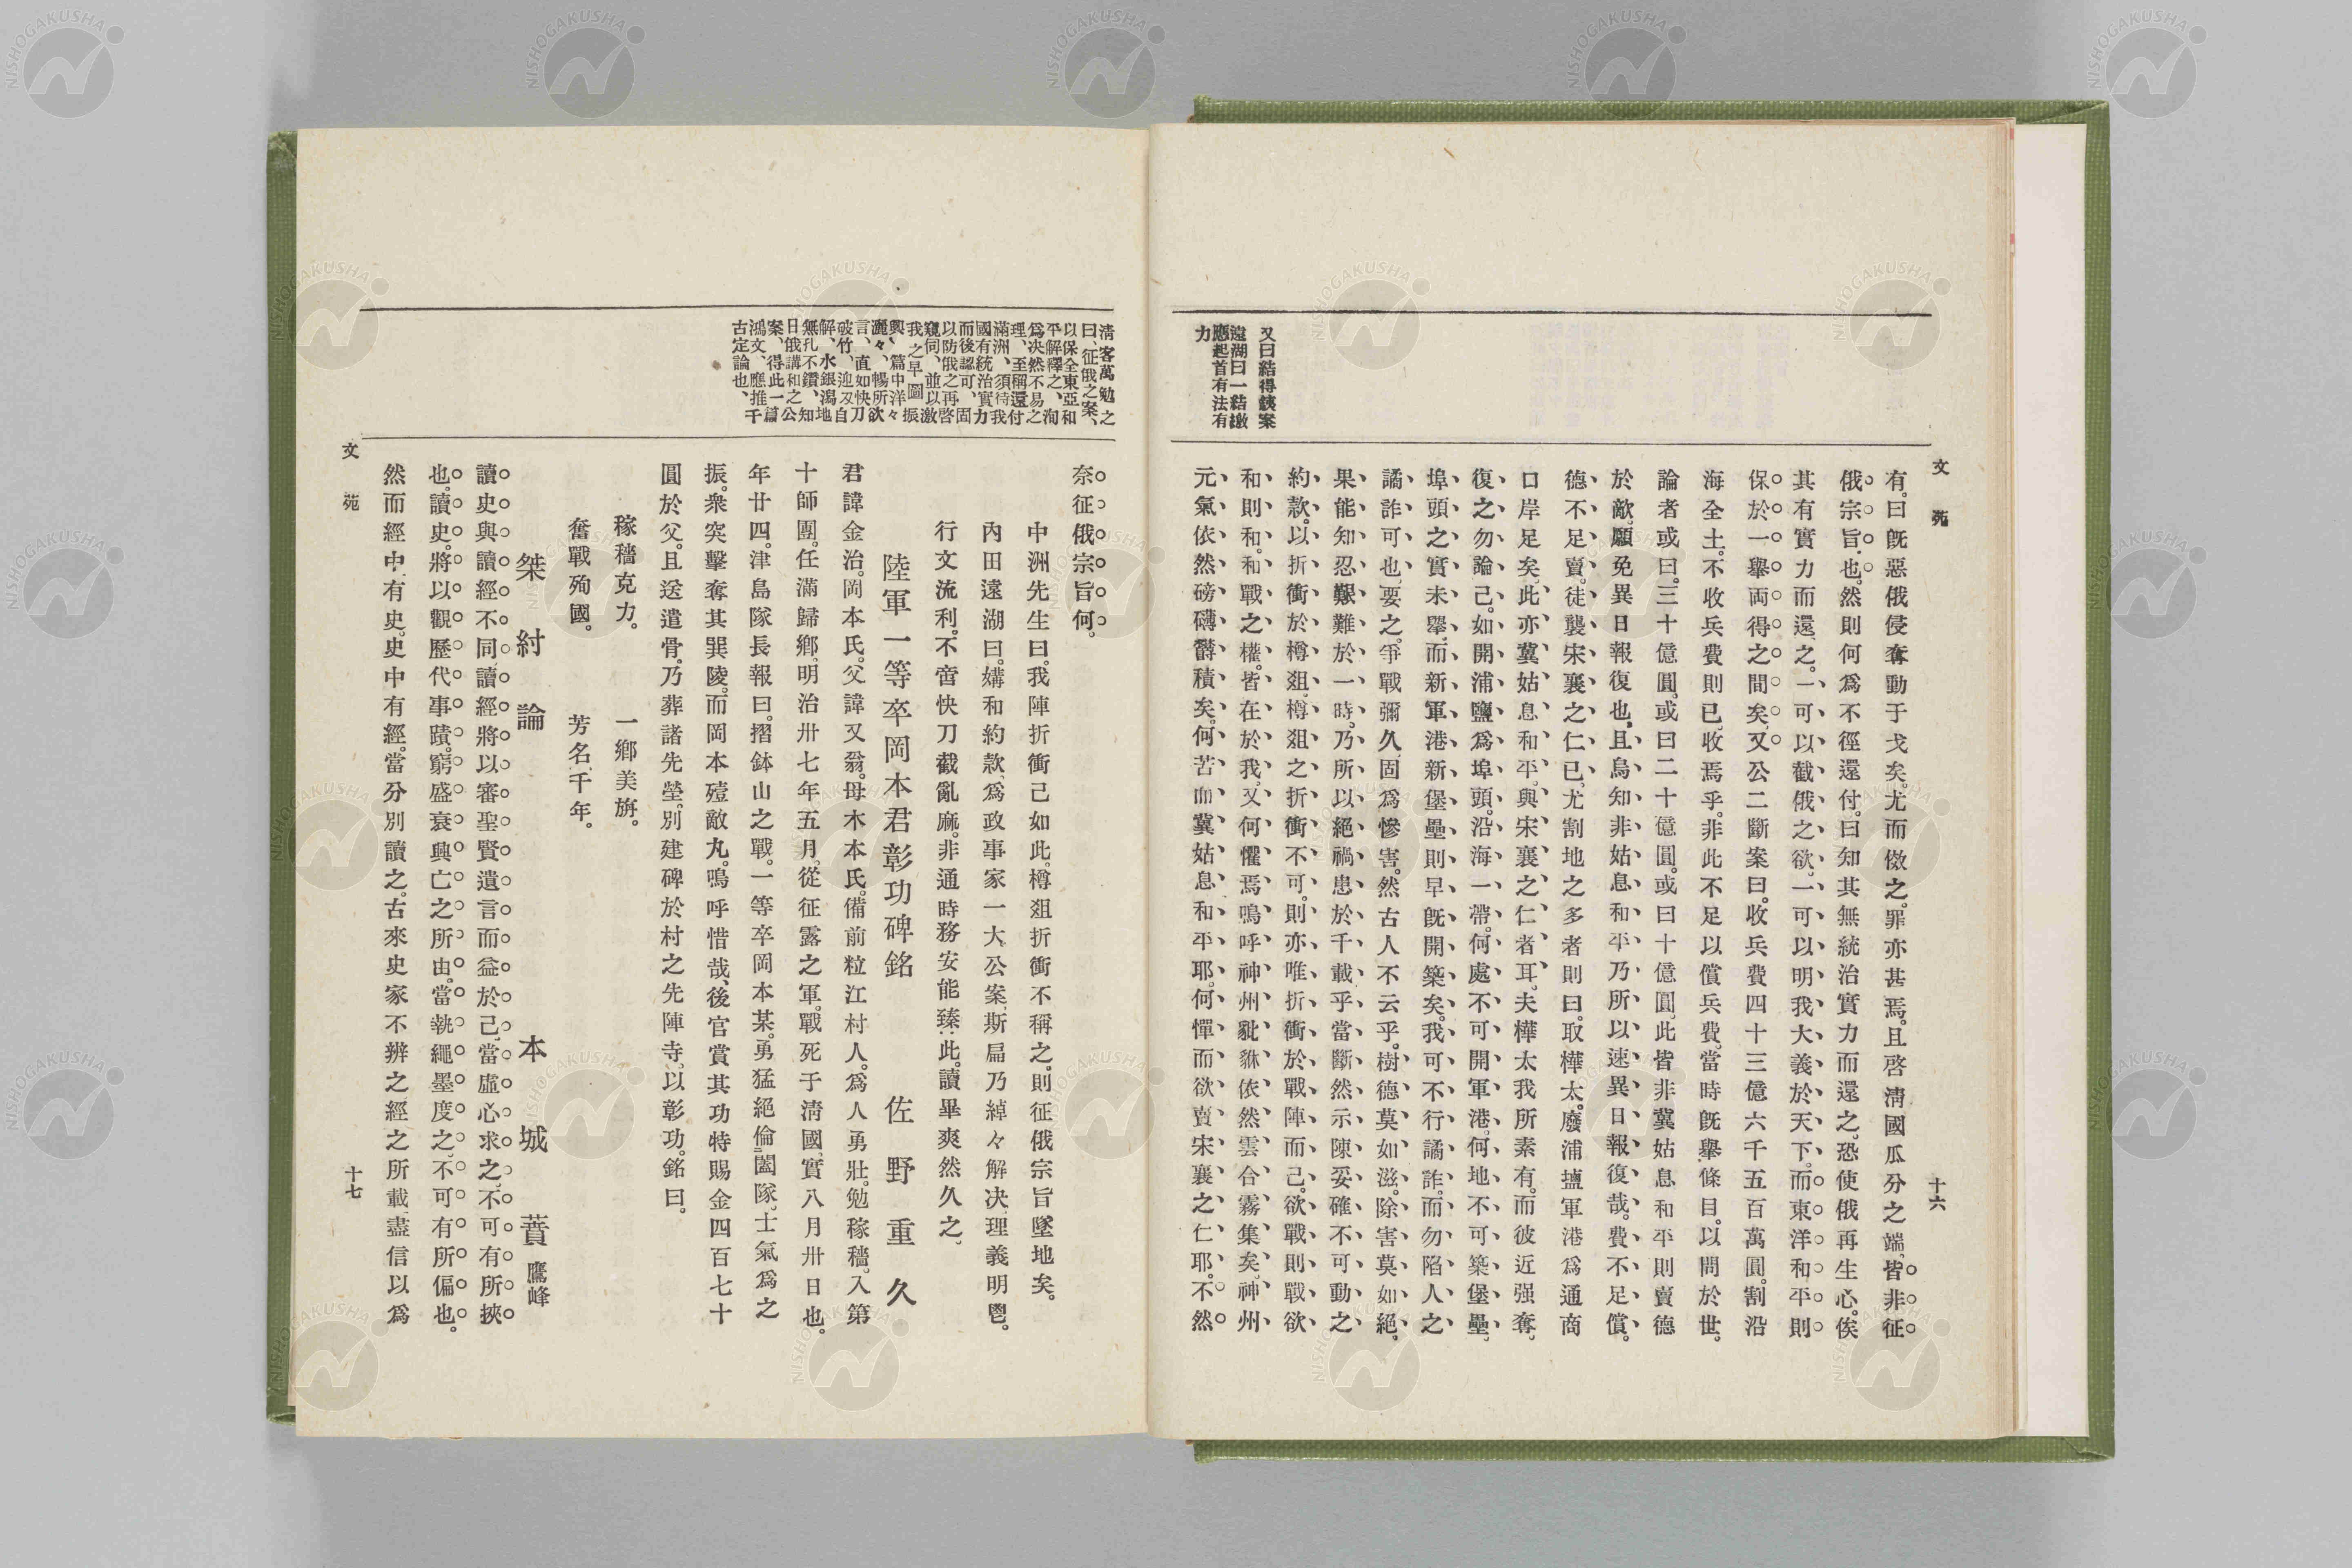 文苑
十六
又曰結得餘案
遠湖曰一結繳
應起首有法有
力
有。曰既惡俄侵奪動于戈矣。尤而倣之。罪亦甚焉。且啓清國瓜分之端。皆非征
俄宗旨也。然則何爲不徑還付。曰知其無統治實力而還之。恐使俄再生心。俟
其有實力而還之。一可以截俄之欲。一可以明我大義於天下。而東洋和平則
保於一擧両得之間矣。又公二斷案曰。收兵費四十三億六千五百萬圓。割沿
海全土。不收兵費則已。收焉乎。非此不足以償兵費。當時既擧條目。以問於世。
論者或曰。三十億圓。或曰二十億圓。或曰十億圓。此皆非冀姑息和平則賣德
於敵。願免異日報復也。且烏知非姑息和平乃所以速異日報復哉。費不足償。
德不足賣。徒襲宋襄之仁已。尤割地之多者則曰。取樺太。廢浦塩軍港爲通商
口岸足矣。此亦冀姑息和平。與宋襄之仁者耳。夫樺太我所素有。而彼近强奪。
復之勿論己。如開浦鹽爲埠頭。沿海一帶。何處不可開軍港。何地不可築堡壘。
埠頭之實未擧。而新軍港新堡壘則早既開築矣。我可不行譎詐。而勿陷人之
譎詐可也。要之。爭戰彌久。固爲慘害。然古人不云乎。樹德莫如滋。除害莫如絕。
果能知忍艱難於一時。乃所以絕禍患於千載乎。當斷然示陳妥確不可動之
約款。以折衝於樽爼。樽爼之折衝不可。則亦唯折衝於戰陣而己。欲戰則戰欲
和則和。和戰之權。皆在於我。又何懼焉。嗚呼神州豼貅依然雲合霧集矣。神州
元氣依然磅礴欝積矣。何苦而冀姑息和平耶。何憚而欲賣宋襄之仁耶。不然
清客萬勉之
曰、征俄之案、
以保全東亞和
平解釋之、洵
爲决然不易之
理、至稱還付
滿洲、須待我
國有統治實力
而後認可、固
以防俄之再啓
窺伺、並以激
我之早圖振
興、篇中洋々
灑々、暢所欲
言、直如快刀
破竹、迎刄自
解、水銀瀉地
無孔不鑽、知
日俄講和之公
案、得此一篇
鴻文、應推千
古定論也、
奈征俄宗旨何。
中洲先生曰。我陣折衝己如此。樽爼折衝不稱之。則征俄宗旨墜地矣。
內田遠湖曰。媾和約款。爲政事家一大公案。斯扁乃綽々解决。理義明鬯。
行文流利。不啻快刀截亂麻。非通時務安能臻此。讀畢爽然久之。
陸軍一等卒岡本君彰功碑銘　佐野重久
君諱金治。岡本氏。父諱又翁。母木本氏。備前粒江村人。爲人勇壯。勉稼穡。入第
十師團。任滿歸鄉。明治卅七年五月。從征露之軍。戰死于淸國。實八月卅日也。
年廿四。津島隊長報曰。摺鉢山之戰。一等卒岡本某。勇猛絕倫。闔隊士氣爲之
振。衆突擊奪其巽陵。而岡本殪敵丸。嗚呼惜哉。後官賞其功特賜金四百七十
圓於父。且送遣骨。乃葬諸先塋。別建碑於村之先陣寺。以彰功。銘曰。
稼穡克力。　一鄉美旃。
奮戰殉國。　芳名千年。
桀紂論　本城蕡鷹峰
讀史與讀經不同。讀經將以審聖賢遺言而益於己。當虛心求之。不可有所挾
也。讀史。將以觀歷代事蹟。窮盛衰興亡之所由。當執繩墨度之。不可有所偏也。
然而經中有史。史中有經。當分別讀之。古來史家不辨之經之所載。盡信以爲
文苑
十七
NISHOGAKUSHA